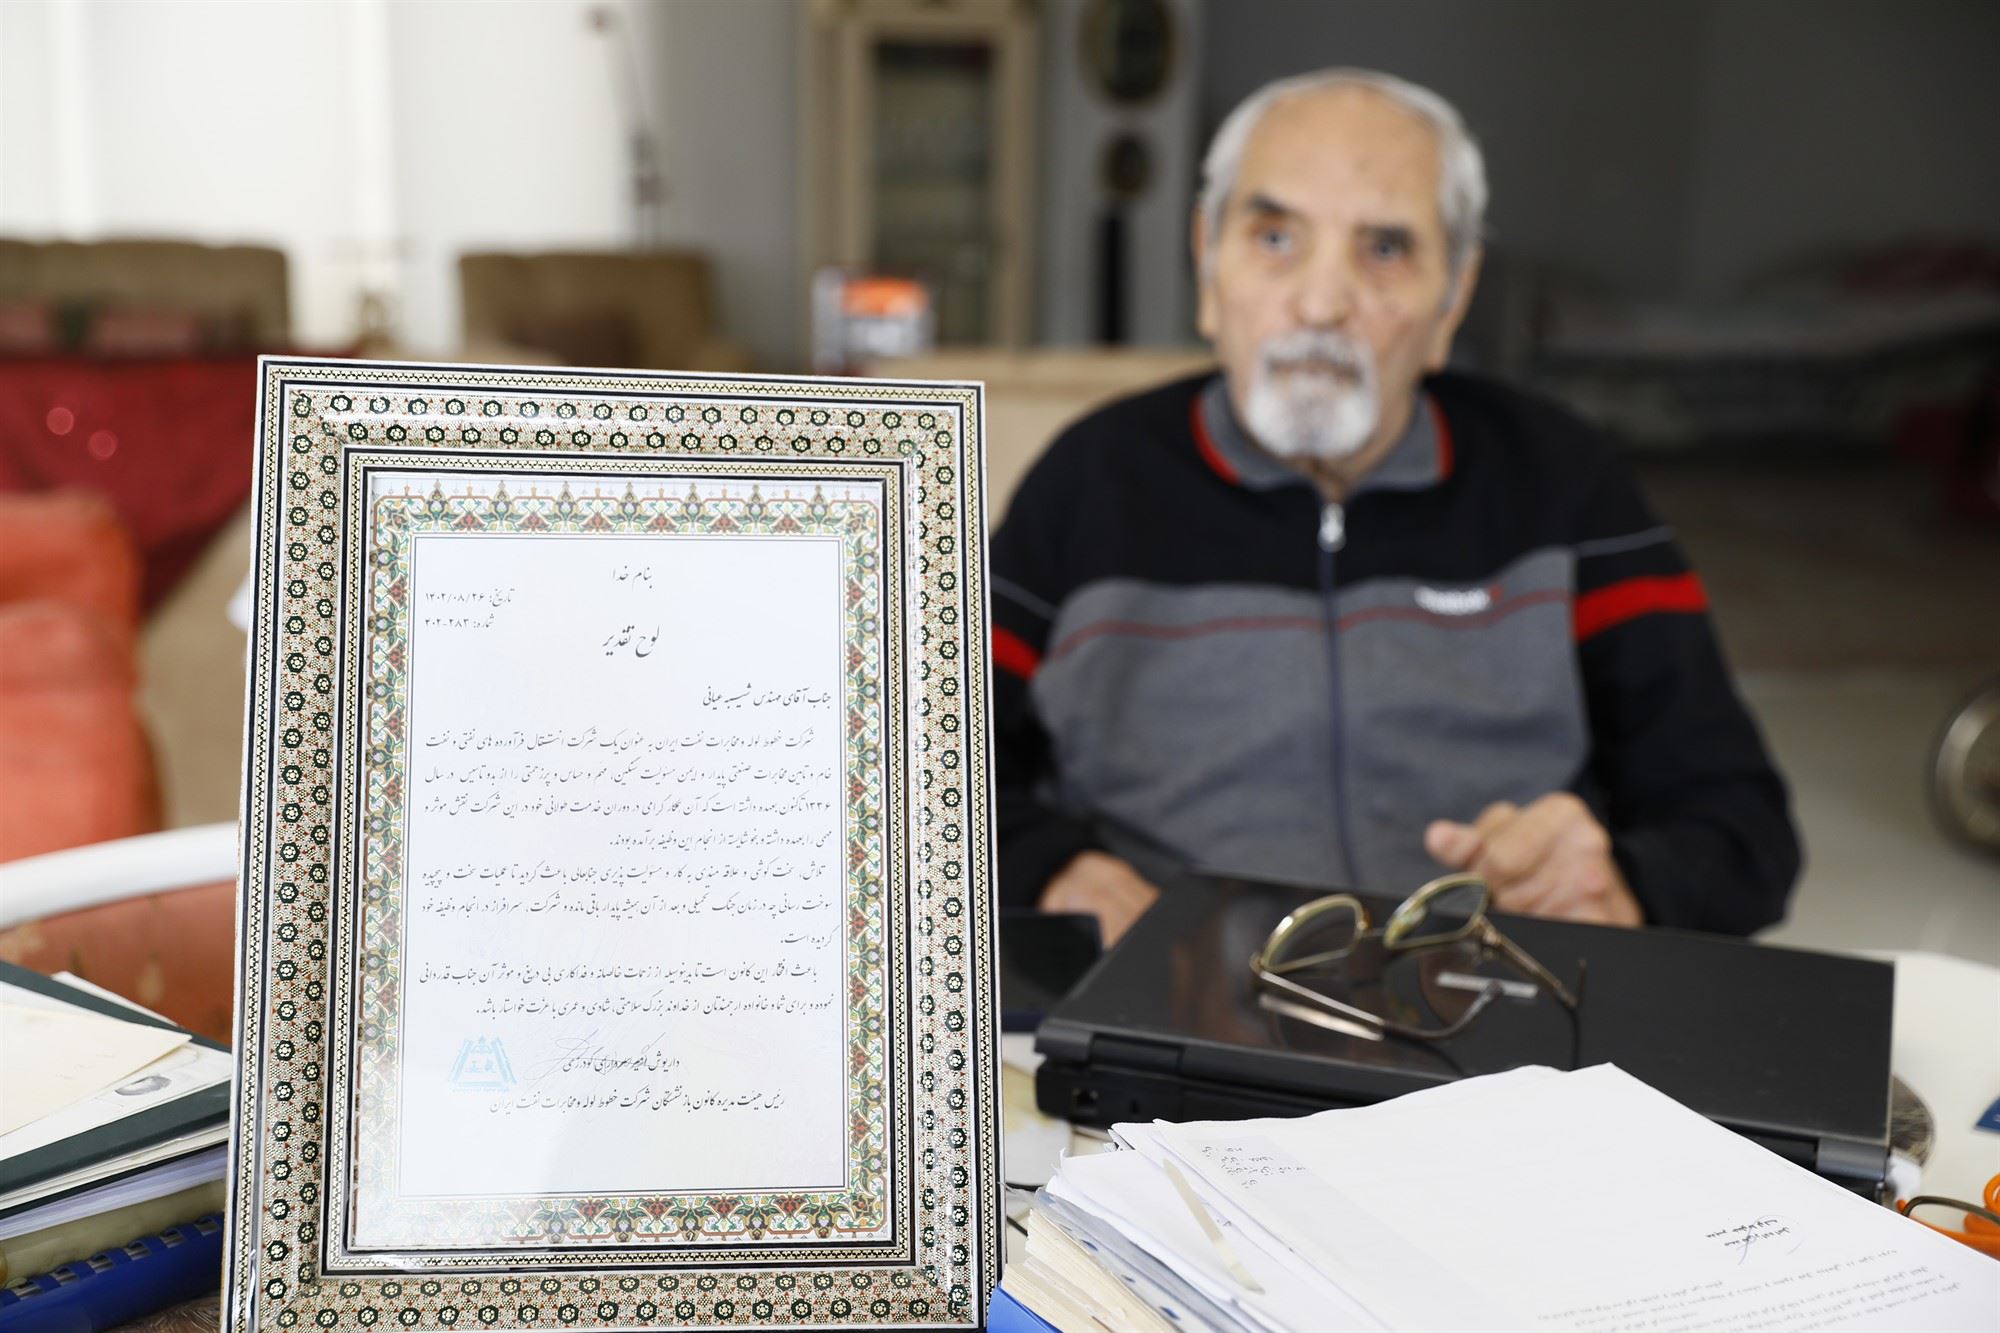 بنام خدا
تاریخ: ۱۴۰۲/۰۸/۲۶
شماره: ۲۸۳-۴۰۲
لوح تقدیر
جناب آقای مهندس شیبه عیانی
شرکت خطوط لوله و مخابرات نفت ایران به عنوان یک شرکت انتقال فرآورده های نفتی و نفت
خام و تامین مخابرات صنعتی پایدار و ایمن مسئولیت سنگین، مهم و حساس و پرزحمتی را از بدو تاسیس در سال
۱۳۳۶ تاکنون بعهده داشته است که آن همکار گرامی در دوران خدمت طولانی خود در این شرکت نقش موثر و
مهمی را بعهده داشته و بخوبی از انجام این وظیفه برآمده بودند.
تلاش، سخت کوشی و علاقه مندی به کار و مسئولیت پذیری جنابعالی باعث گردید تا عملیات سخت و پیچیده
سوخت رسانی چه در زمان جنگ تحمیلی و بعد از آن همیشه پایدار باقی مانده و شرکت، سرافراز در انجام وظیفه خود
گردیده است.
باعث افتخار این کانون است تا بدینوسیله از زحمات خالصانه و فداکاری بی دریغ و موثر آن جناب قدردانی
نموده و برای شما و خانواده ارجمندتان از خداوند بزرگ سلامتی، شادی و عمری با عزت خواستار باشد.
داریوش گودرزی
رئیس هیئت مدیره کانون بازنشستگان شرکت خطوط لوله و مخابرات نفت ایران